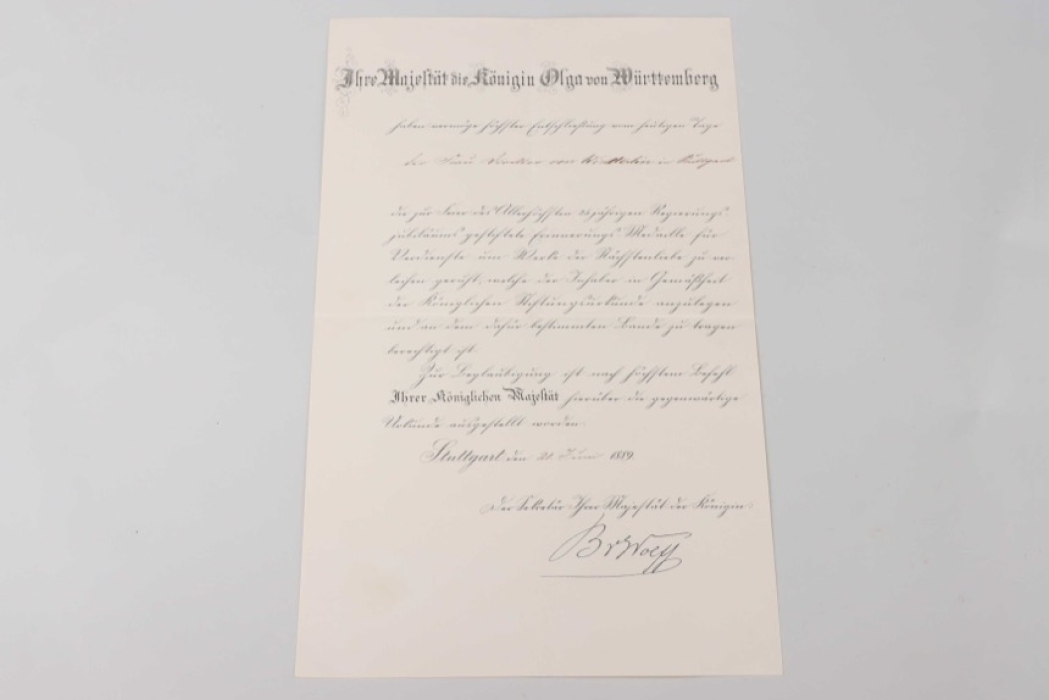 Ihre Majestät die Königin Olga von Württemberg
haben vermöge höchster Entschließung vom heutigen Tage
der Frau von in
die zur Feier des Allerhöchsten 25jährigen Regierungs-
jubiläums gestiftete Erinnerungs Medaille für
Verdienste um Werke der Nächstenliebe zu ver-
leihen geruht, welche der Inhaber in Gemäßheit
der Königlichen Stiftungsurkunde anzulegen
und an dem dafür bestimmten Bande zu tragen
berechtigt ist.
Zur Beglaubigung ist nach höchstem Befehl
Ihrer Königlichen Majestät hierüber die gegenwärtige
Urkunde ausgestellt worden.
Stuttgart den 1889.
Der Sekretär Ihrer Majestät der Königin: